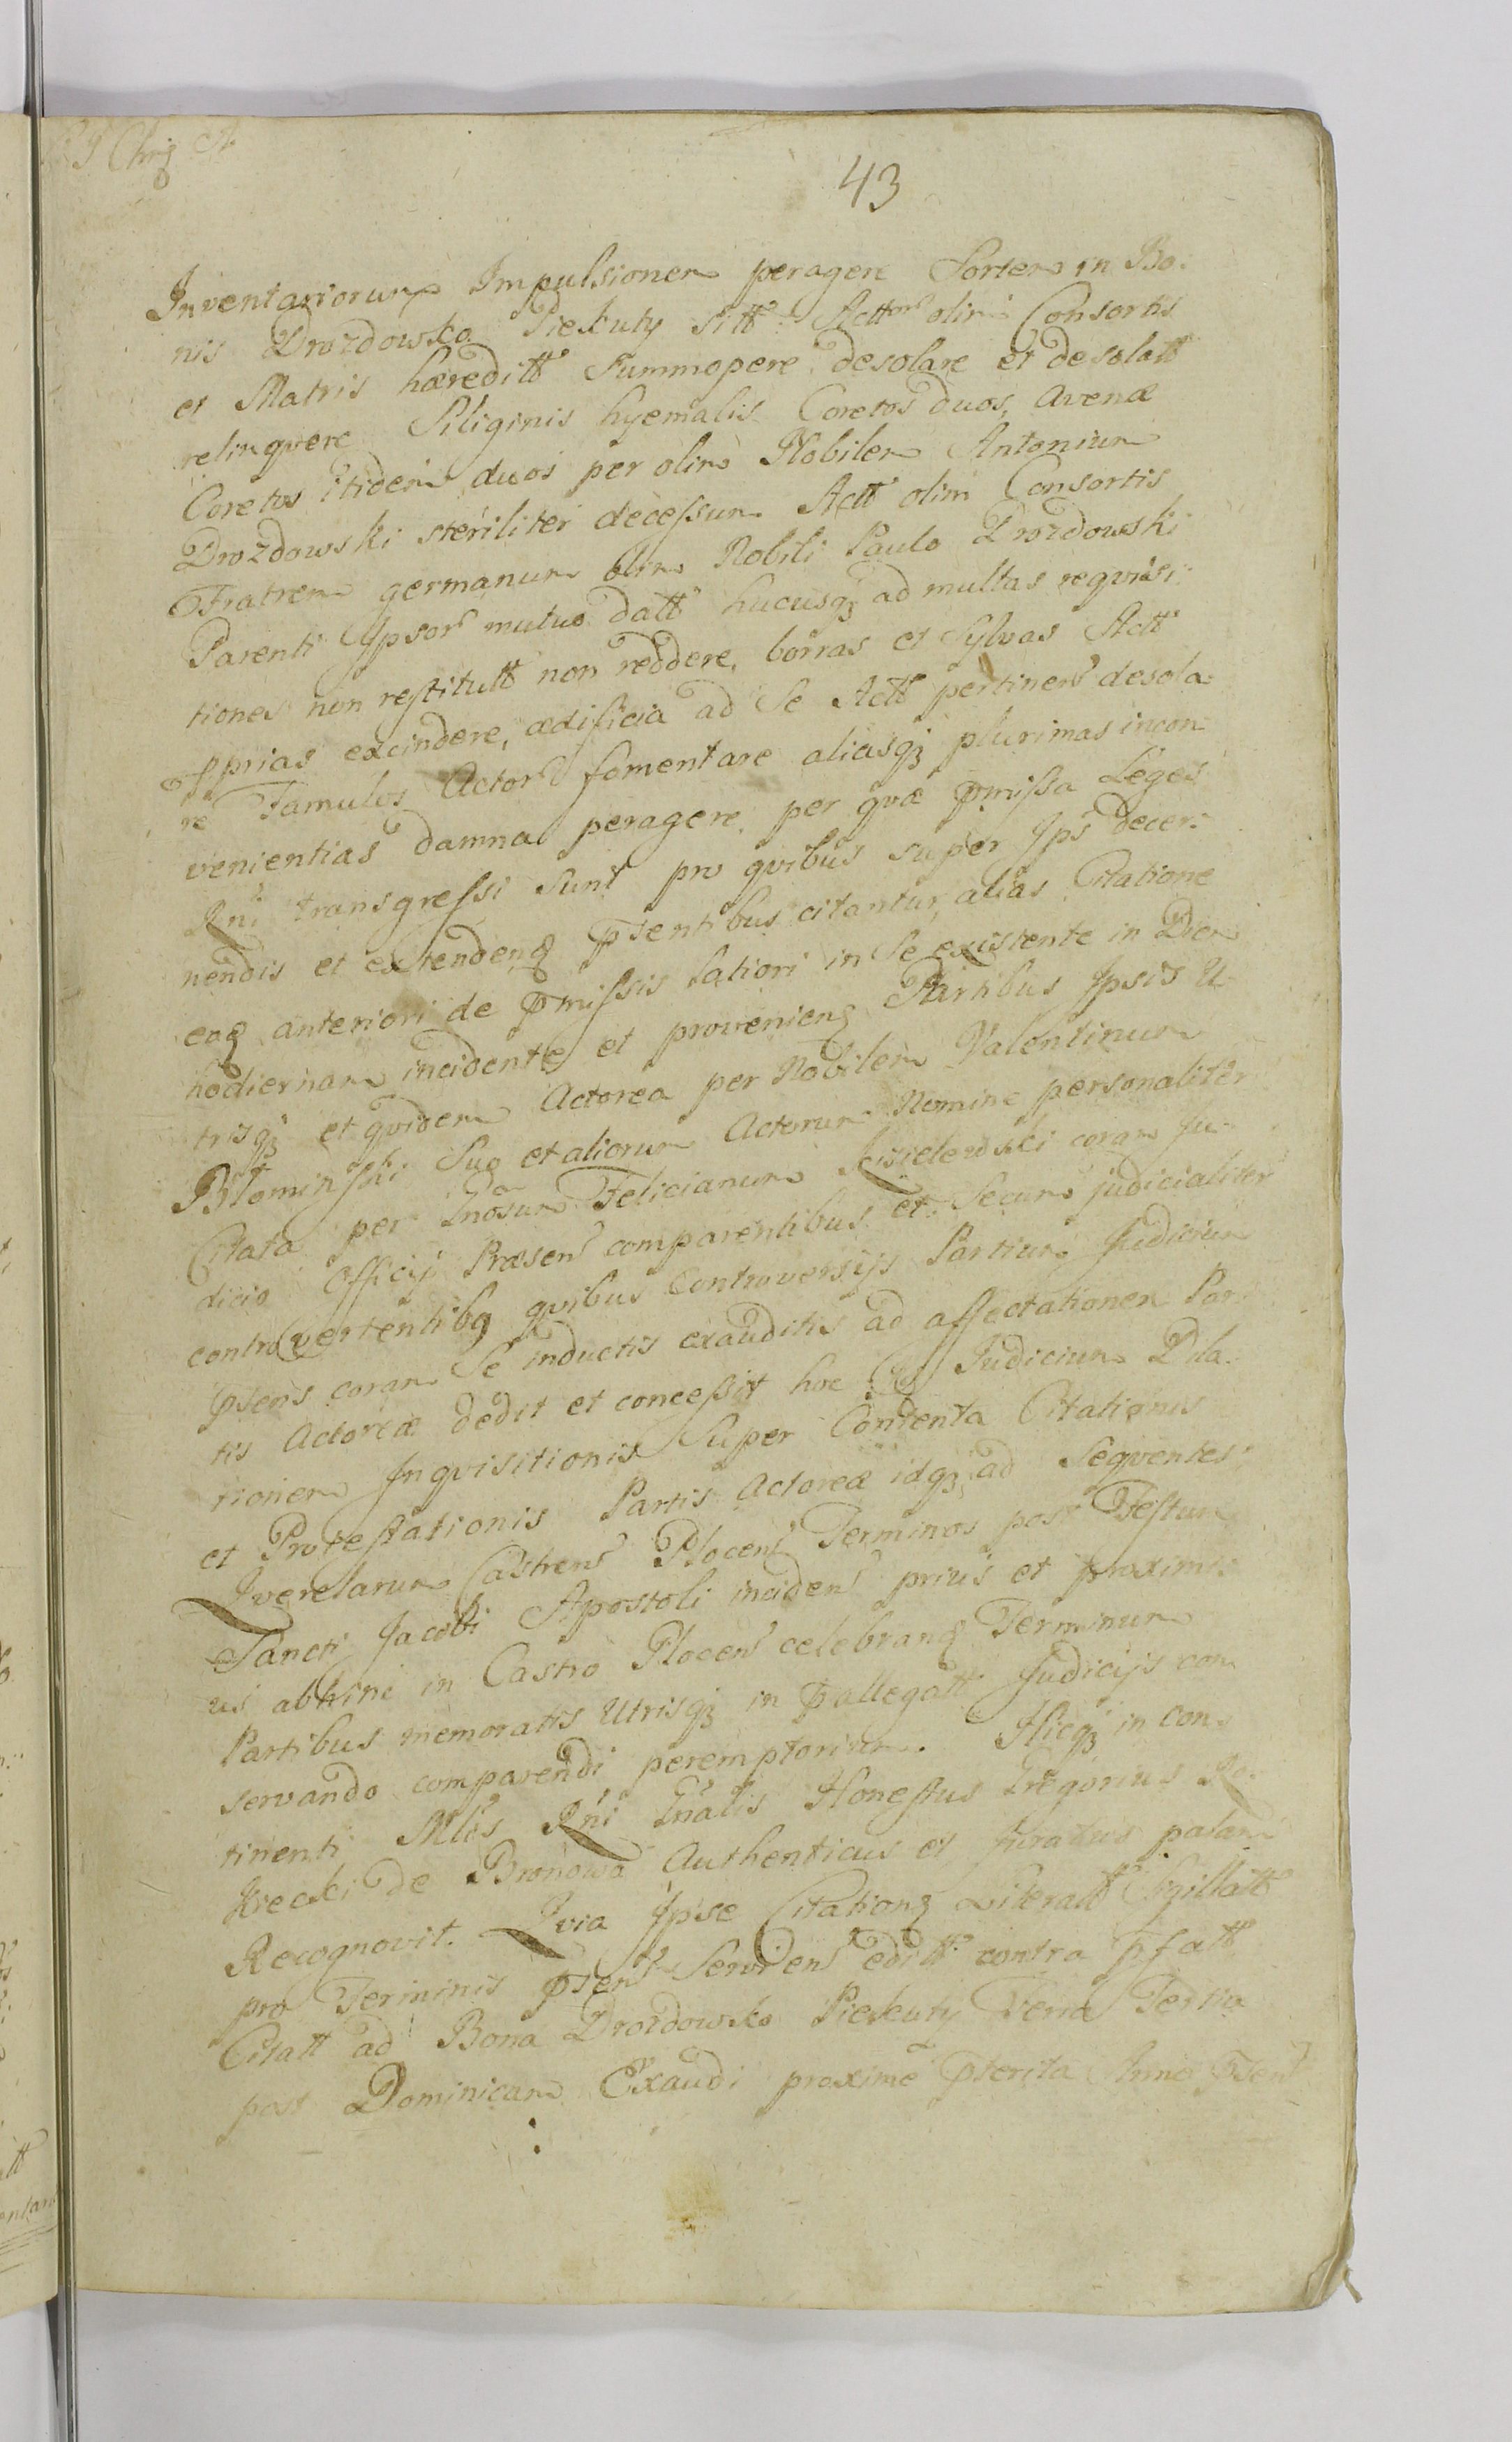 43
Inventariorum Impulsionem peragere Sortem in Bo:
nis Drozdowsko Piekuty sitt: Acttor olim Consortis
et Matris hæreditt Summopere desolare et desolatt
relinqvere Siliginis hyemalis Coretos duos, avenæ
Coretos itidem duos per olim Nobilem Antonium
Drozdowski steriliter decessum Actt olim Consortis
Fratrem germanum olim Nobili Paulo Drozdowski
Parenti Ipsor mutuo datt hucusq ad multas reqvisi:
tiones non restitutt non reddere, borras et Sylvas Actt
pprias excindere, ædificia ad se Actt pertinen desola:
re Famulos Actor fomentare aliasq plurimas incon
venientias damna peragere, per qvæ pmissa Leges
Rni transgressi sunt pro qvibus super Ips decer:
nendis et extendenq psentibus citantur, alias Citatione
eaq anteriori de pmissis latiori in se existente in Diem
hodiernam incidente et provenienq Partibus Ipsis U
trisq et qvidem Actorea per Nobilem Valentinum
Błominski Suo et aliorum Actorum Nomine personaliter
Citata per Gnosum Felicianum Kisielewski coram Ju
dicio Officij Præsen comparentibus et Secum judicialiter
controvertentibq qvibus Controversijs Partium Judicium
psens coram Se inductis exauditis ad affectationem Par
tis Actoreæ dedit et concessit hoc Judicium Dila:
tionem Inqvisitionis Super Contenta Citationis
et Protestationis Partis Actoreæ idq ad Seqventes
Qverelarum Castren Plocen Terminos post Festum
Sancti Jacobi Apostoli inciden prius et proxime:
us abhinc in Castro Plocen celebranq Terminum
Partibus memoratis Utrisq in pallegatt Judicijs con
servando comparendi peremptorium. Hicq in con:
tinenti Mlis Rni Gnalis Honestus Gregorius Ro:
kecki de Bronowo Authenticus et juratus palam
Recognovit. Qvia Ipse Citationq Literatt Sigillatt
pro Terminis psen Servien editt contra pfatt
Citatt ad Bona Drozdowsko Piekuty Feria Tertia
post Dominicam Exaudi proxime pterita Anno psen